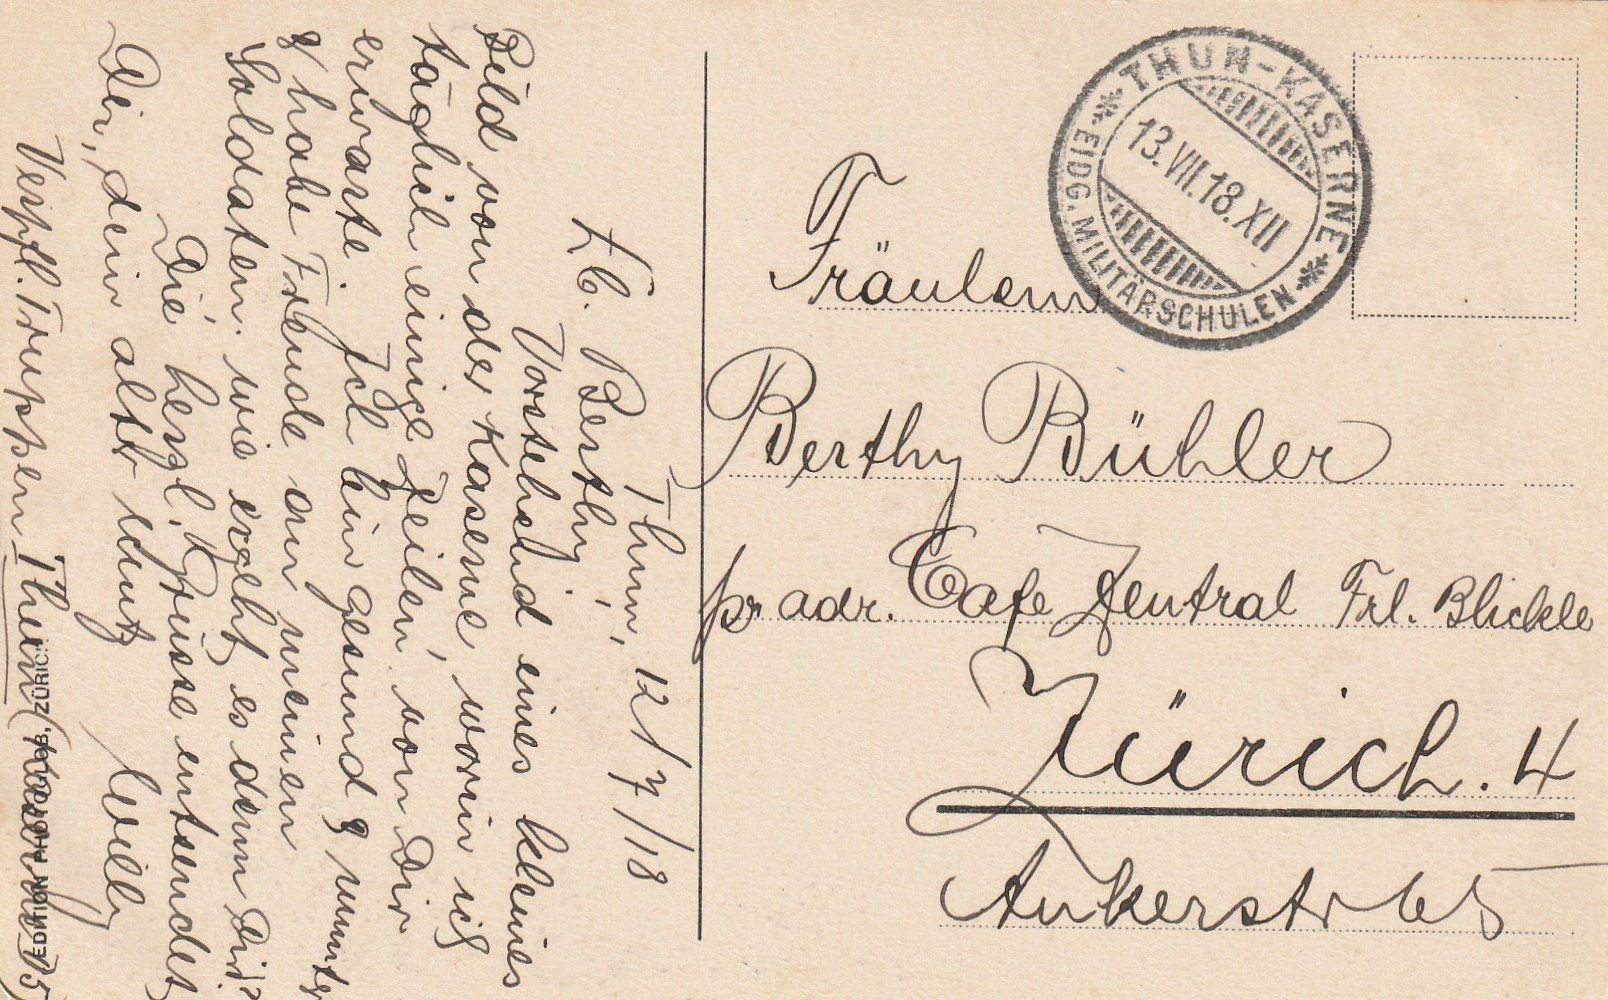 Thun, 12/7/18
Lb. Berthy,
Vorstehend eines kleines
Bild von der Kaserne, worin ich
täglich einige Zeilen, von Dir
erwarte. Ich bin gesund & munter
& habe Freude an meinen
Soldaten, wie ergeht es denn Dir?
Die herzl. Grüsse entsendet
Dir, dein alter Schutz
Willy
Verpfl. Truppen Thun
THUN-KASERNE
13.VII.18.XII
EIDG. MILITÄRSCHULEN
Fräulein
Berthy Bühler
pr adr. Cafe Zentral Frl. Blickle
Zürich. 4
Ankerstr 65
EDITION ZÜRICH